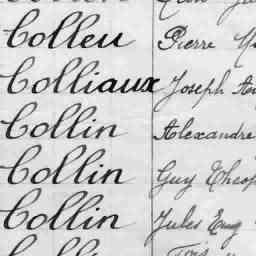 Colleu Pierre
Colliaux Joseph
Collin Alexandre
Collin Guy
Collin Jules Eug